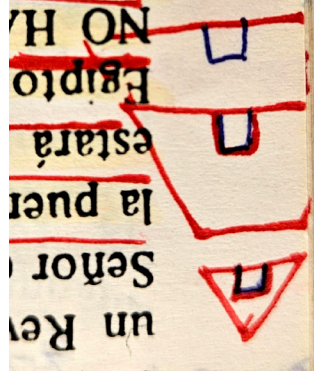 un Rev
Señor
la puer
estará
Egipto
NO HA